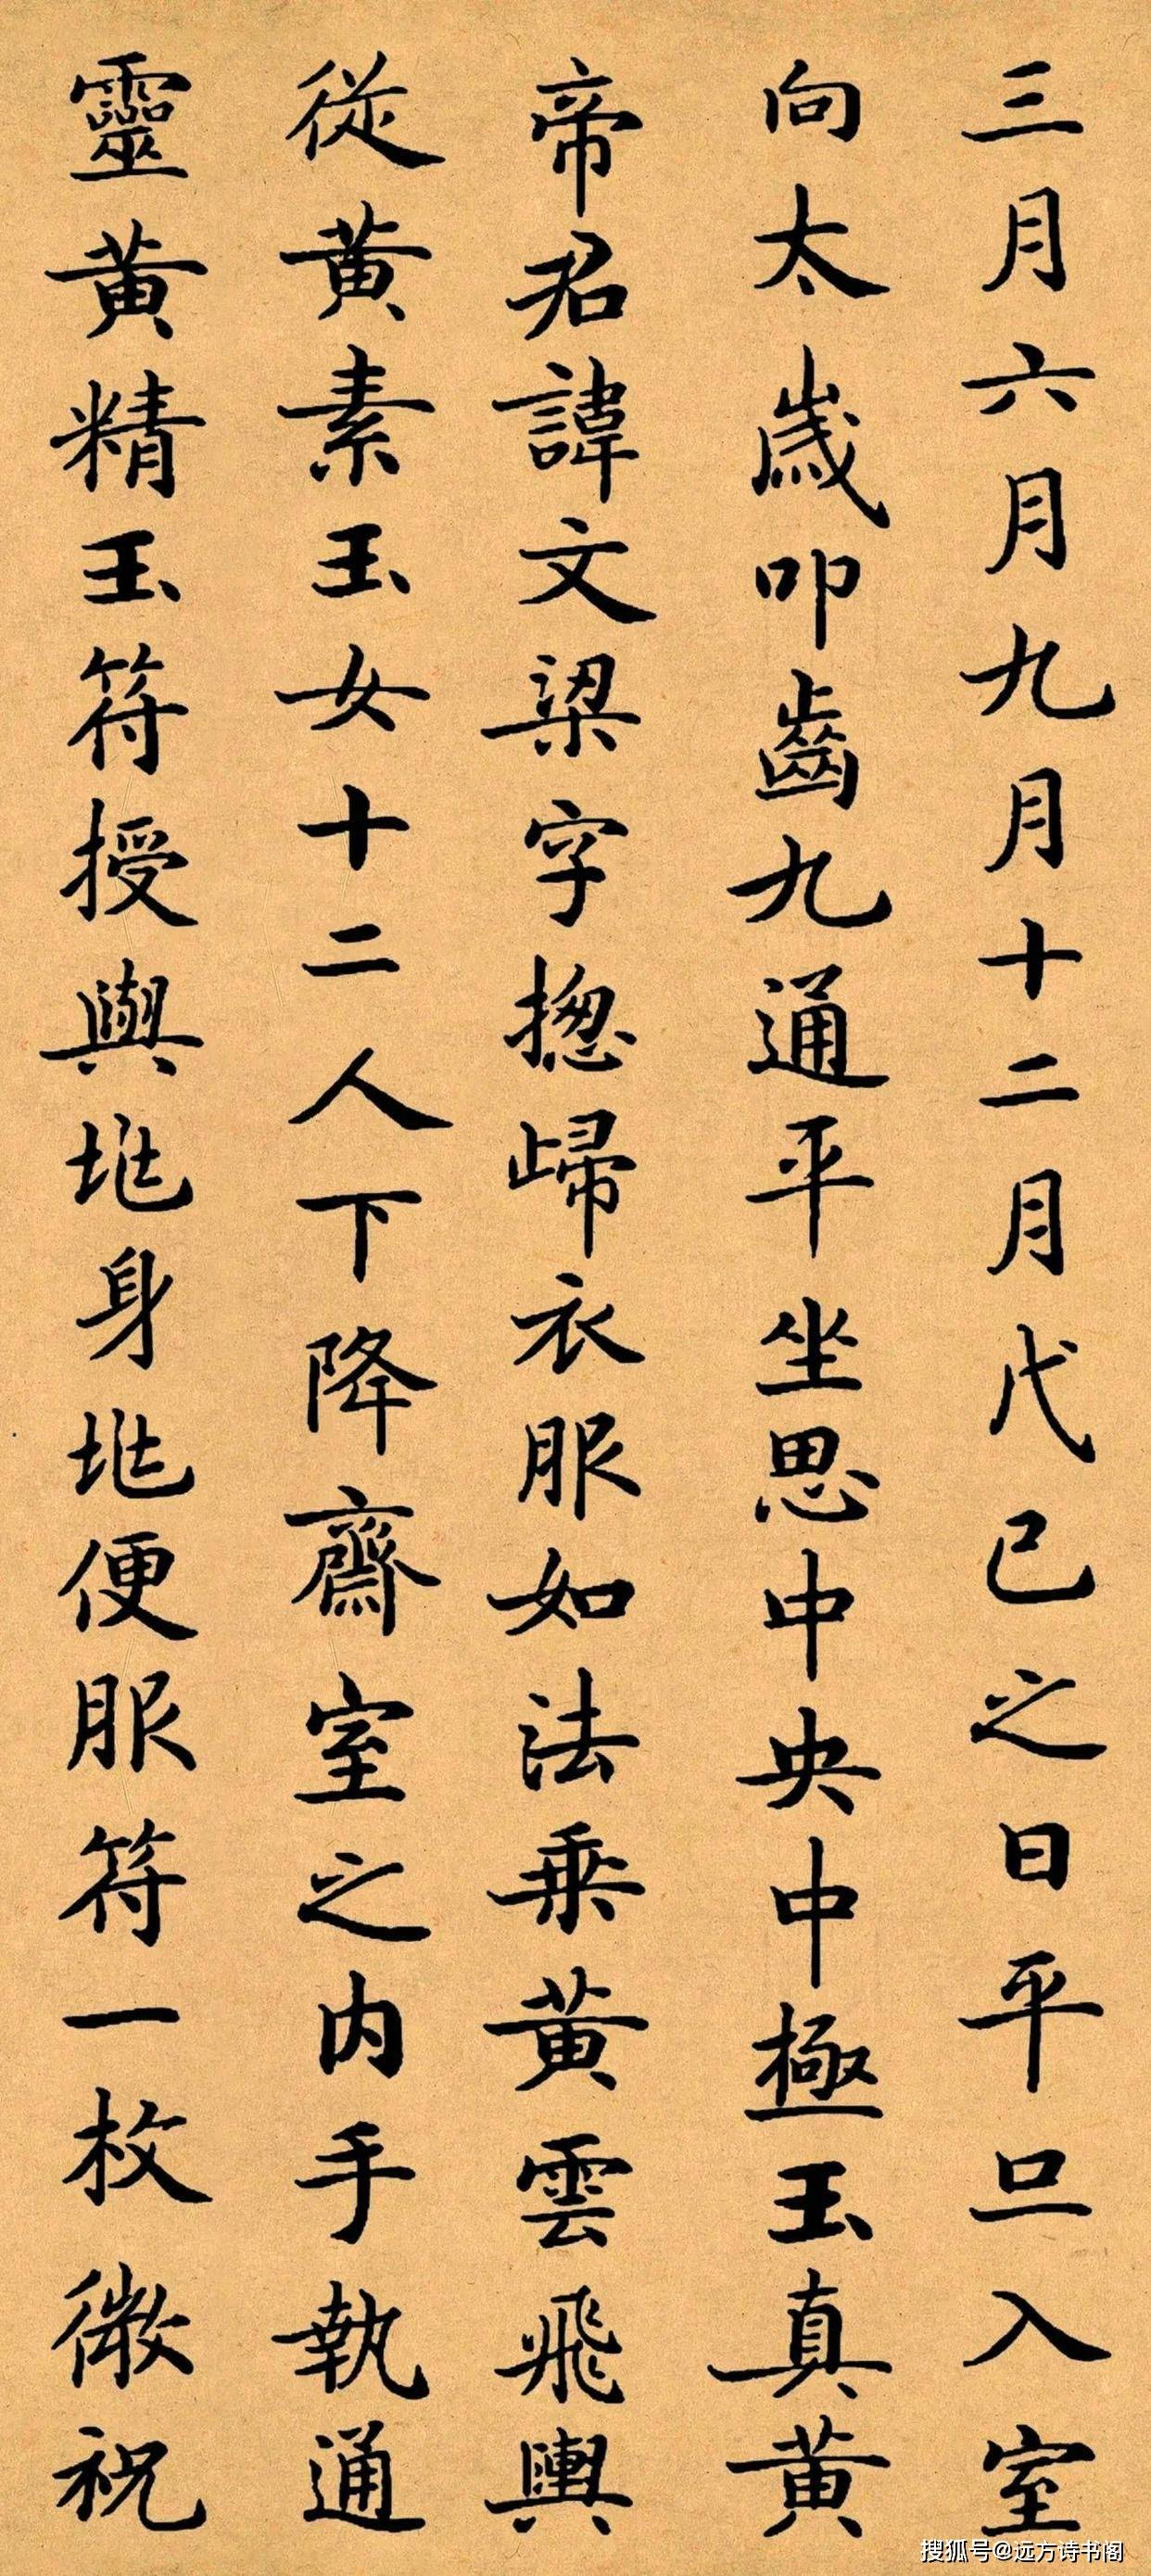 三月六月九月十二月戊己之日平旦入室
向太歲叩齒九通平坐思中央中極玉真黃
帝君諱文梁字揔歸衣服如法乗黃雲飛輿
從黃素玉女十二人下降齋室之內手執通
靈黃精玉符授與兆身兆便服符一枚微祝
搜狐号@远方诗书阁